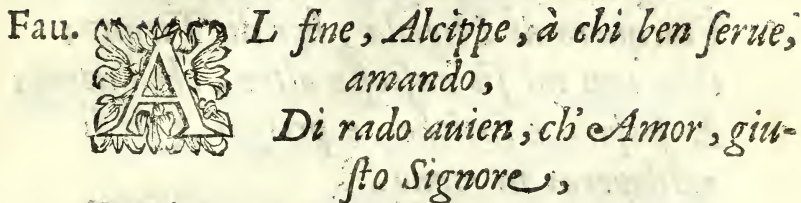 Fau. AL fine, Alcippe, à chi ben ſerue,
amando,
Di rado auien, ch'Amor, giu-
ſto Signore,